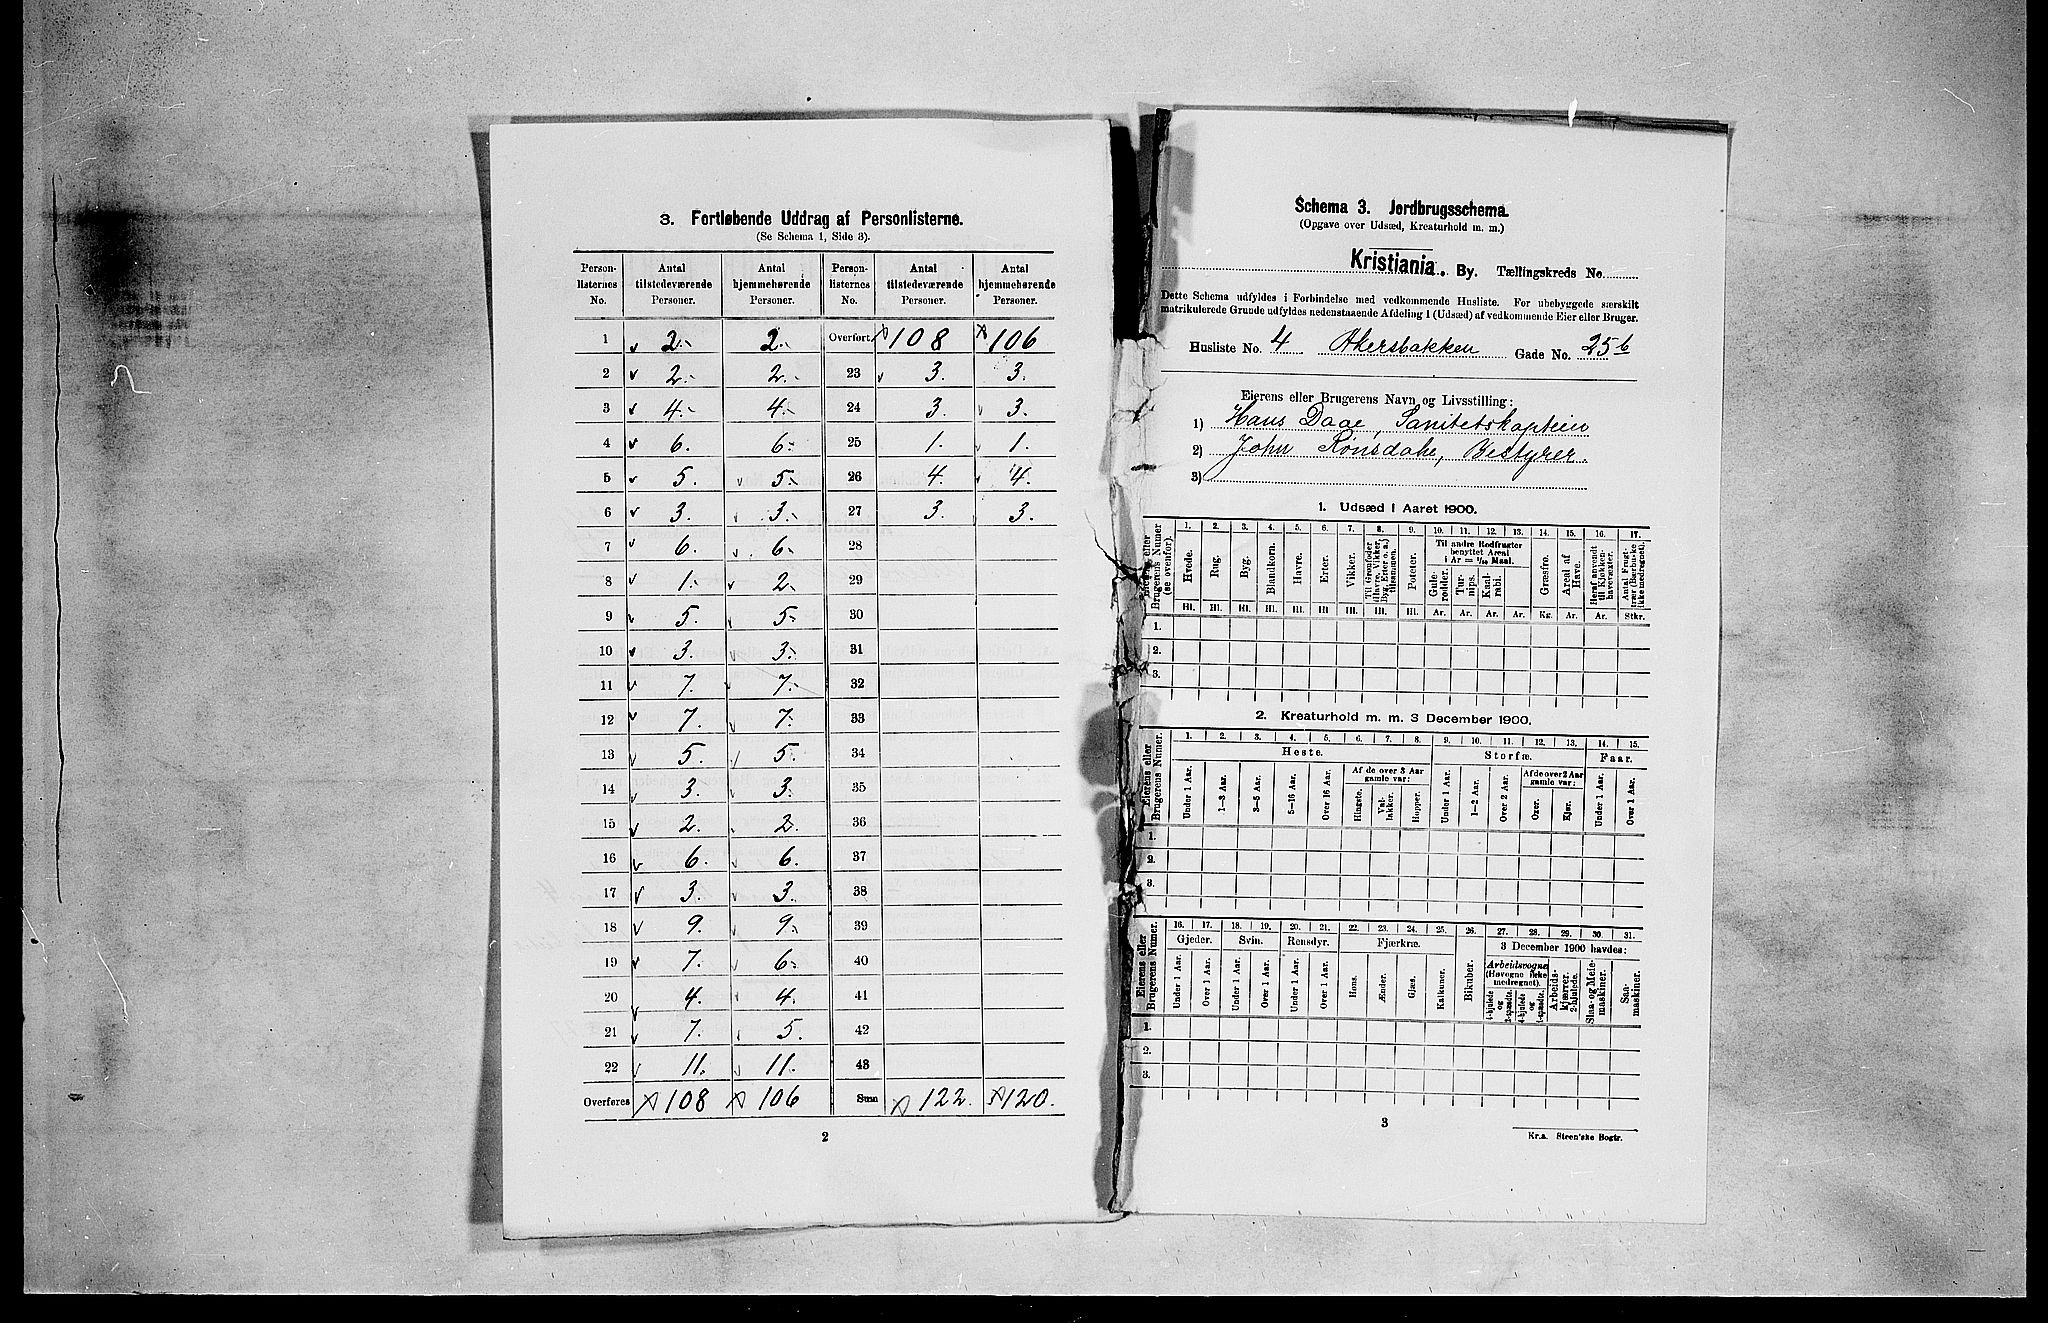 3. Fortløbende Uddrag af Personlisterne.
(Se Schema 1, Side 3).
Person-listernes No. | Antal tilstedeværende Personer. | Antal hjemmehørende Personer. | Person-listernes No. | Antal tilstedeværende Personer. | Antal hjemmehørende Personer.
1 2. 2. Overført 108 106
2 2. 2. 23 3. 3.
3 4. 4. 24 3. 3.
4 6. 6. 25 1. 1.
5 5. 5. 26 4. 4.
6 3. 3. 27 3. 3.
7 6. 6. 28
8 1. 2. 29
9 5. 5. 30
10 3. 3. 31
11 7. 7. 32
12 7. 7. 33
13 5. 5. 34
14 3. 3. 35
15 2. 2. 36
16 6. 6. 37
17 3. 3. 38
18 9. 9. 39
19 7. 6. 40
20 4. 4. 41
21 7. 5. 42
22 11. 11. 43
Overføres 108 106 Sum 122. 120.
2
Schema 3. Jordbrugsschema.
(Opgave over Udsæd, Kreaturhold m. m.)
Kristiania. By. Tællingskreds No
Dette Schema udfyldes i Forbindelse med vedkommende Husliste. For ubebyggede særskilt
matrikulerede Grunde udfyldes nedenstaaende Afdeling 1 (Udsæd) af vedkommende Eier eller Bruger.
Husliste No. 4 Akersbakken Gade No. 25b
Eierens eller Brugerens Navn og Livsstilling:
1) Hans Daae, Sanitetskaptein
2) John Rønsdahe, Bestyrer.
3)
1. Udsæd i Aaret 1900.
Eierens eller Brugerens Numer (se ovenfor).
1. 2. 3. 4. 5. 6. 7. 8. 9. 10. 11. 12. 13. 14. 15. 16. 17.
Til andre Rodfrugter benyttet Areal i Ar = 1/10 Maal.
Hvede. Rug. Byg. Blandkorn. Havre. Erter. Vikker. Til Grønfoder (Havre, Vikker, Byg, Erter o. a.) tilsammen. Poteter. Gule-rødder. Tur-nips. Kaal-rabi. Græsfrø. Areal af Have. Heraf anvendt til Kjøkken-havevæxter. Antal Frugt-trær (Bærbuske ikke medregnet).
Hl. Hl. Hl. Hl. Hl. Hl. Hl. Hl. Hl. Ar. Ar. Ar. Ar. Kg. Ar. Ar. Stkr.
1.
2.
3.
2. Kreaturhold m. m. 3 December 1900.
Eierens eller Brugerens Numer.
1. 2. 3. 4. 5. 6. 7. 8. 9. 10. 11. 12. 13. 14. 15.
Heste. Storfæ. Faar.
Af de over 3 Aar gamle var: Af de over 2 Aar gamle var:
Under 1 Aar. 1—3 Aar. 3—5 Aar. 5—16 Aar. Over 16 Aar. Hingste. Val-lakker. Hopper. Under 1 Aar. 1—2 Aar. Over 2 Aar. Oxer. Kjør. Under 1 Aar. Over 1 Aar.
1.
2.
3.
Eierens eller Brugerens Numer.
16. 17. 18. 19. 20. 21. 22. 23. 24. 25. 26. 27. 28. 29. 30. 31.
Gjeder. Svin. Rensdyr. Fjærkræ. 3 December 1900 havdes:
Arbeidsvogne (Høvogne ikke medregnet).
Under 1 Aar. Over 1 Aar. Under 1 Aar. Over 1 Aar. Under 1 Aar. Over 1 Aar. Høns. Ænder. Gjæs. Kalkuner. Bikuber. 4-hjulede og 2-spændte. 4-hjulede og 1-spændte. Arbeids-kjærrer, 2-hjulede. Slaa- og Meie-maskiner. Saa-maskiner.
1.
2.
3.
3
Kr.a. Steen'ske Bogtr.